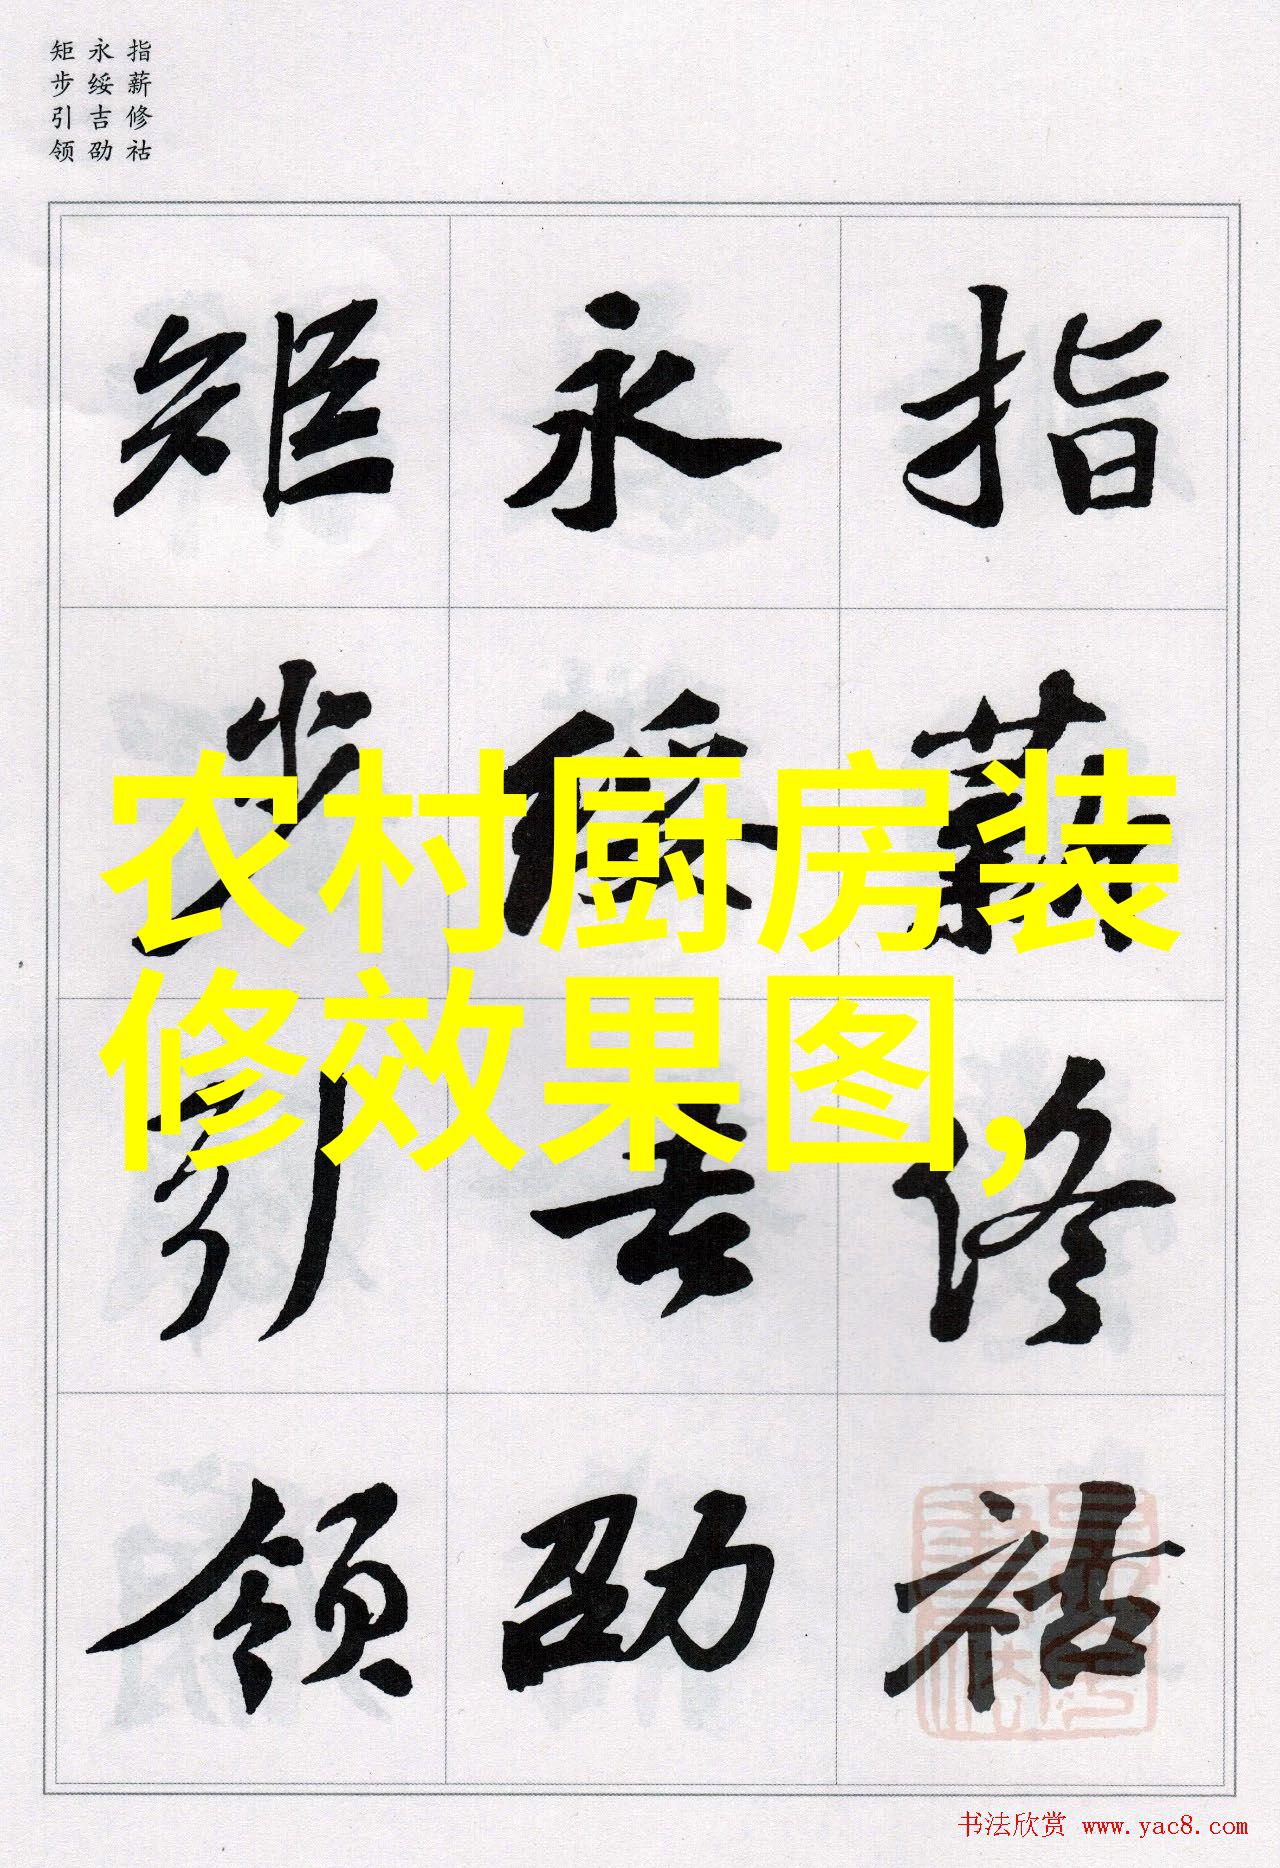 指薪修祜
永绥吉劭
矩步引领
指薪修祜
永绥吉劭
矩步引领
农村厨房装
修效果图,
书法欣赏 www.yac8.com